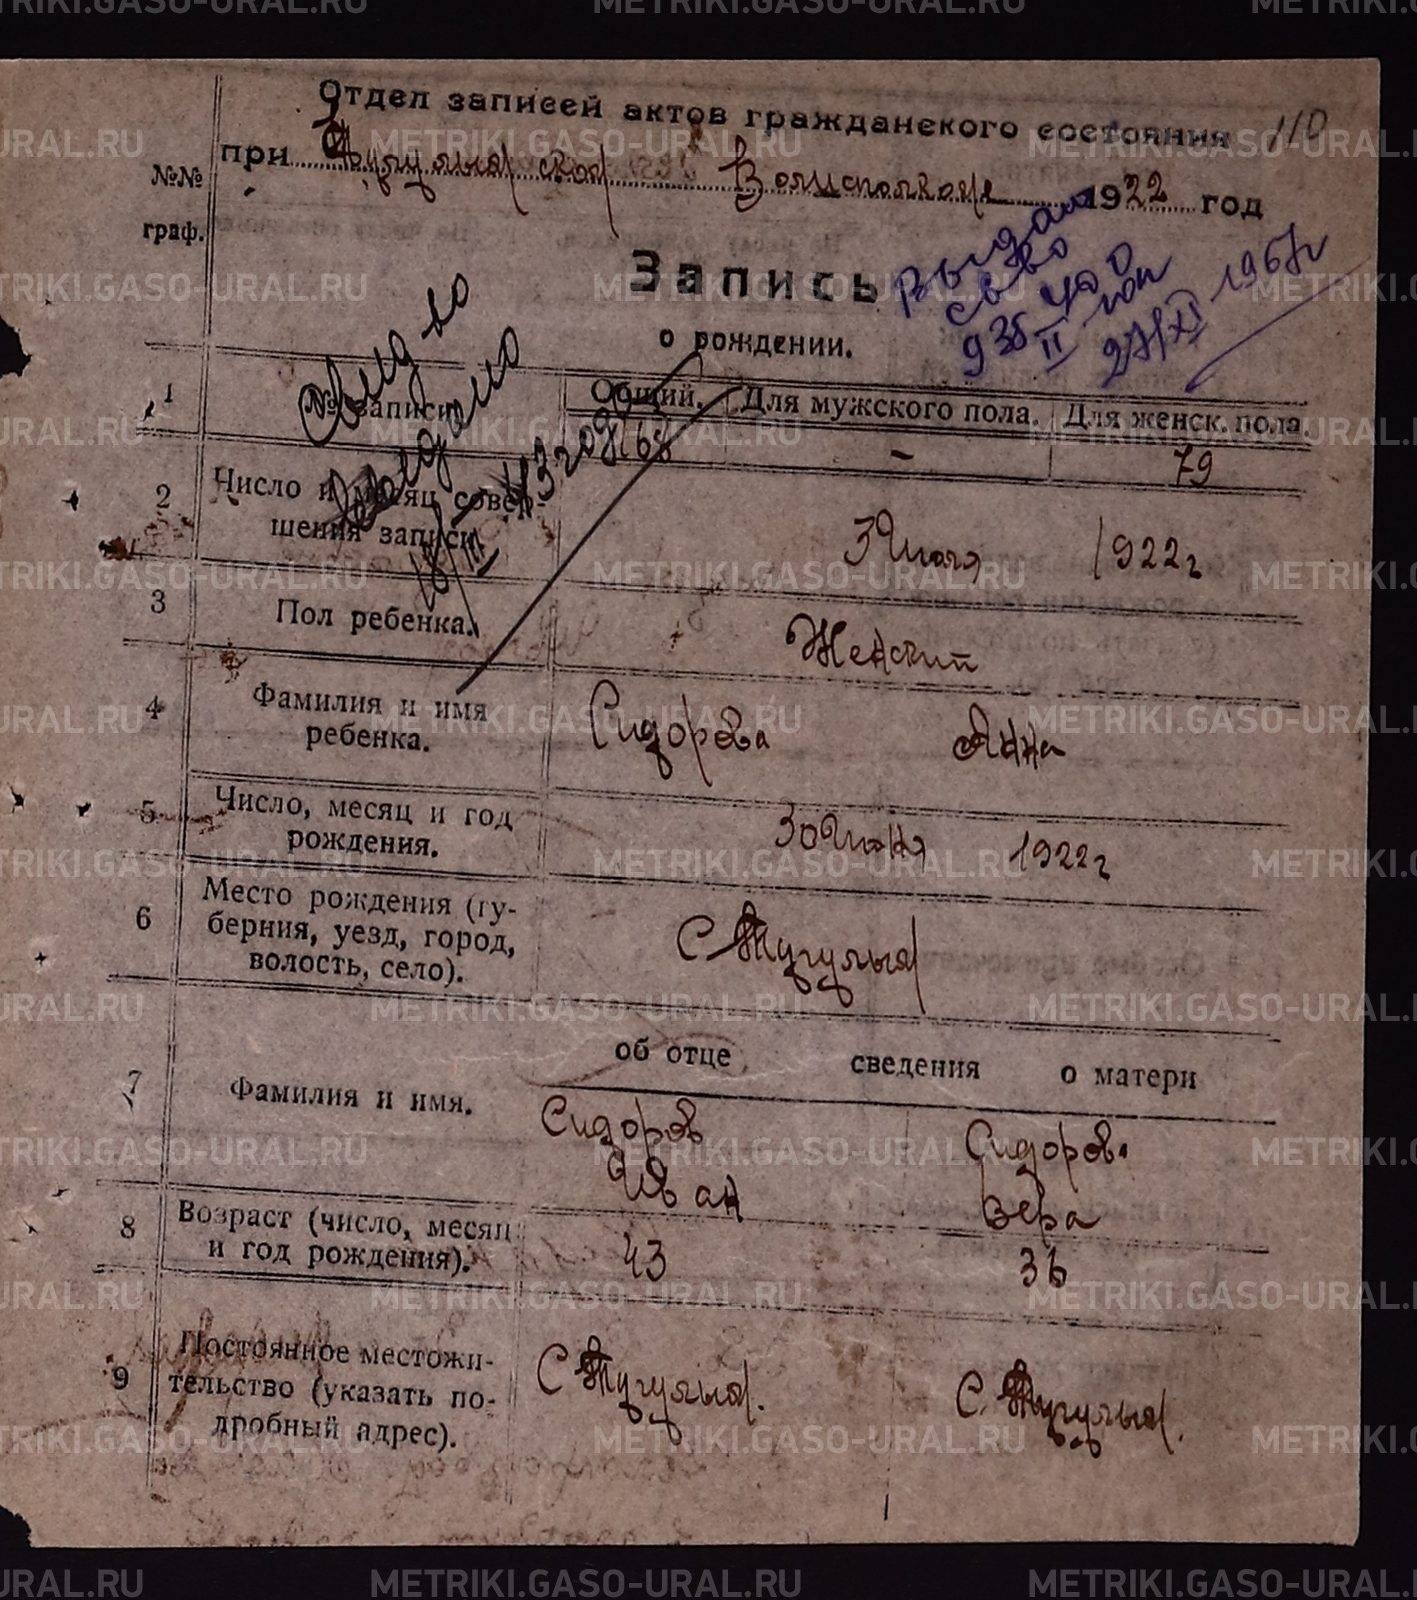 METRIKI.GASO-URAL.RU
Отдел записей актов гражданского состояния 110
при Волисполкоме 1922 год
№№
граф.
Запись
о рождении.
Выдано
св-во
27/XI 1967г
Свид-во
выдано
1 № записи Общий. Для мужского пола. Для женск. пола.
- 79
2 Число и месяц совер-
шения записи 3 Июля 1922г
3 Пол ребенка. Женский
4 Фамилия и имя
ребенка. Сидорова Анна
5 Число, месяц и год
рождения. 30 Июня 1922г
6 Место рождения (гу-
берния, уезд, город,
волость, село). С Тугулым
об отце сведения о матери
7 Фамилия и имя. Сидоров Сидорова
Иван Вера
8 Возраст (число, месяц
и год рождения). 43 36
9 Постоянное местожи-
тельство (указать по-
дробный адрес). С Тугулым. С. Тугулым.